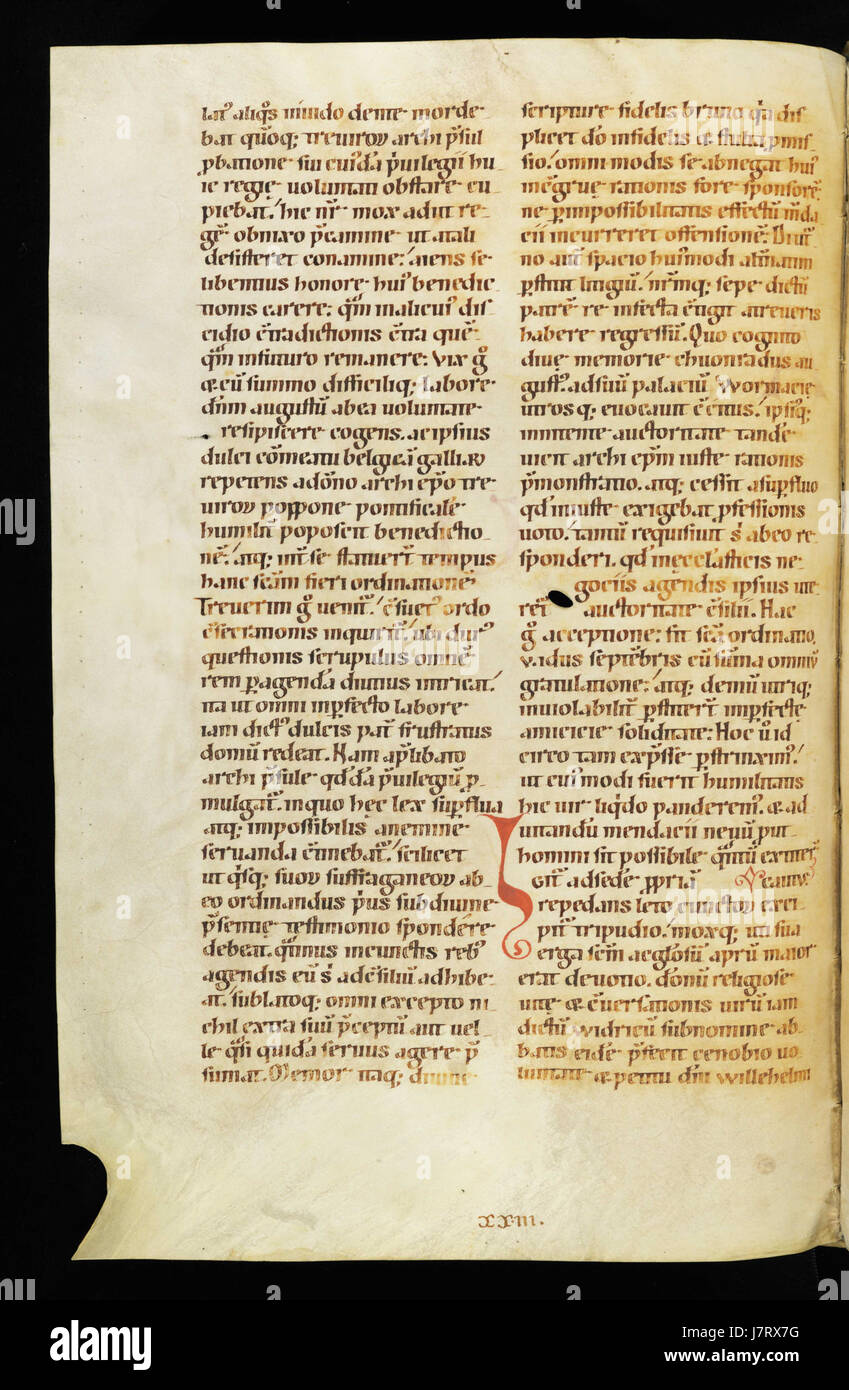 lat᾽ aliq̇s mundo dente morde
bat quoq; treuirov archi p̄sul
ꝓbatione sui cuidā p̄uilegii hu
ic regię uoluntati obstare cu
piebat. hic nr̄ mox adiit re
gē obnixo p̄camine ut a tali
desisteret conamine: aiens se
libentius honore hui᾽ benedic
tionis carere: qm̄ in alicui᾽ dis
cidio c̄tradictionis c̄tra quē
qm̄ instituto remanere: Vix g̊
& cū summo difficiliq; labore
dn̄m augustū ab ea uoluntate
resipiscere cogens. ac ipsius
dulci cōmeatu belgicā galliā
repetens a dōno archi ep̄o tre
uirov poppone pontificale
humilit̄ poposcit benedictio
nē. atq; int̄ se statuer̄t tempus
hanc sc̄am fieri ordinationē
Treuerim g̊ uenit᾽. c̄suet᾽ ordo
c̄secrationis inquirit᾽. ubi dur᾽
questionis scrupulus omnē
rem ꝑagendā diutius intricat.
ita ut omni inꝑfecto labore
iam dict᾽ dulcis pat̄ frustratus
domū redeat. Nam ap̄libato
archi p̄sule qddā p̄uilegiū ꝓ
mulgat᾽. in quo hec lex suꝑflua
atq; impossibilis a nemine
seruanda c̄tinebat᾽. scilicet
ut qsq; suov suffraganeov ab
eo ordinandus p̄us sub diuine
p̄sentię testimonio spondere
debeat. q̄tinus in cunctis reb᾽
agendis eū s᾽ ad c̄siliū adhibe
at. sublatoq; omni excepto ni
chil extra suū p̄ceptū aut uel
le q̄si quidā seruus agere p̄
sumat. Memor itaq; diuine
scripture fidelis bruno qā dis
plicet dō infidelis & stulta ꝓmis
sio. omni modis se abnegat hui᾽
incōgruę rationis fore sponsorē
ne ꝓ impossibilitatis effectu mda
cii incurreret offensionē. Diut᾽
no aut̄ spacio hui᾽modi altn̄atim
ꝓstitit litigiū. nr̄mq; sepe dictū
patrē re infecta c̄tigit a treueris
habere regressū. Quo cognito
diuę memorię chuonradus au
gust᾽. ad suū palaciū Wormacię
utrosq; euocauit c̄citus. ipsiq;
innitente auctoritate tandē
uicit archi ep̄m iuste rationis
p̄monstratio. atq; cessit a suꝑfluo
qd iniuste exigebat ꝓfessionis
uoto. tantū requisiuit s᾽ ab eo re
sponderi. qd in ecc̄lasticis ne
gociis agendis ipsius ute
ret᾽ auctoritate c̄silii. Hac
g̊ acceptione: fit sc̄a ordinatio,
v. idus septēbris cū sūma omniū
gratulatione. atq; demū utriq;
inuiolabilit̄ ꝑstiter̄t in ꝑfecte
amicicie soliditate: Hoc ū id
circo tam exp̄sse ꝑstrinxim᾽.
ut cui᾽modi fuerit humilitatis
hic uir liqdo panderem᾽. & ad
uitandū mendacii neuū put
homini sit possibile q̄ntū extitit
Git᾽ ad sedē ꝓpriā
repedans leto cunctov exci
pit᾽ tripudio. moxq; ut sua
erga sc̄m ac gl̄osū aprū maior
erat deuotio. dōnū religiose
uitę & c̄uersationis uirū iam
dictū widricū sub nomine ab
batis eidē p̄fecit cenobio uo
luntate & petitu dn̄i willehelmi
xxiii.
alamy
Image ID: J7RX7G
www.alamy.com